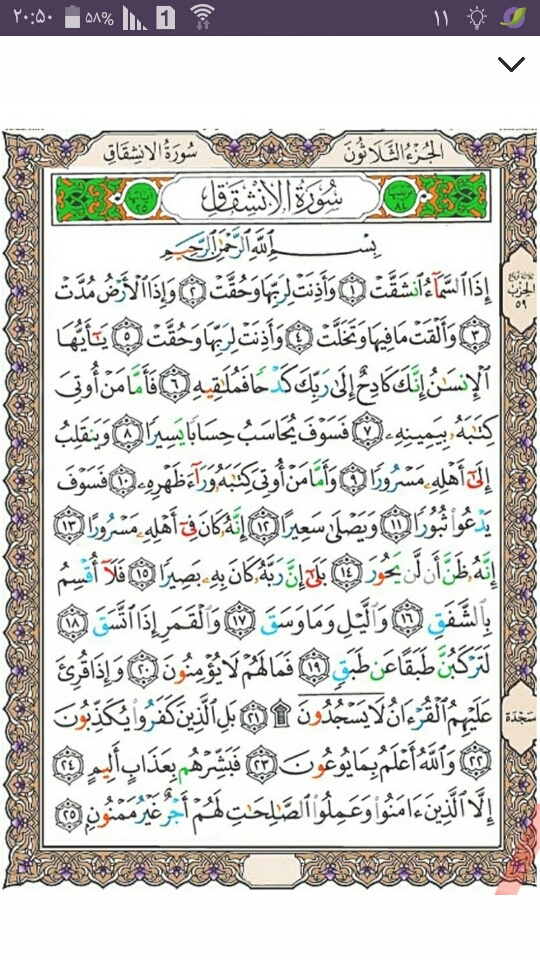 ٢٠:٥٠ ٥٨% 1 ١١
سُورَةُ الانشِقَاقِ الجُزءُ الثَّلَاثُونَ
سُورَةُ الِانْشِقَاقِ
بِسْمِ اللَّهِ الرَّحْمَٰنِ الرَّحِيمِ
إِذَا السَّمَآءُ انشَقَّتْ ١ وَأَذِنَتْ لِرَبِّهَا وَحُقَّتْ ٢ وَإِذَا الْأَرْضُ مُدَّتْ
٣ وَأَلْقَتْ مَا فِيهَا وَتَخَلَّتْ ٤ وَأَذِنَتْ لِرَبِّهَا وَحُقَّتْ ٥ يَٰٓأَيُّهَا
الْإِنسَٰنُ إِنَّكَ كَادِحٌ إِلَىٰ رَبِّكَ كَدْحًا فَمُلَٰقِيهِ ٦ فَأَمَّا مَنْ أُوتِيَ
كِتَٰبَهُۥ بِيَمِينِهِۦ ٧ فَسَوْفَ يُحَاسَبُ حِسَابًا يَسِيرًا ٨ وَيَنقَلِبُ
إِلَىٰٓ أَهْلِهِۦ مَسْرُورًا ٩ وَأَمَّا مَنْ أُوتِيَ كِتَٰبَهُۥ وَرَآءَ ظَهْرِهِۦ ١٠ فَسَوْفَ
يَدْعُوا۟ ثُبُورًا ١١ وَيَصْلَىٰ سَعِيرًا ١٢ إِنَّهُۥ كَانَ فِىٓ أَهْلِهِۦ مَسْرُورًا ١٣
إِنَّهُۥ ظَنَّ أَن لَّن يَحُورَ ١٤ بَلَىٰٓ إِنَّ رَبَّهُۥ كَانَ بِهِۦ بَصِيرًا ١٥ فَلَآ أُقْسِمُ
بِالشَّفَقِ ١٦ وَالَّيْلِ وَمَا وَسَقَ ١٧ وَالْقَمَرِ إِذَا اتَّسَقَ ١٨
لَتَرْكَبُنَّ طَبَقًا عَن طَبَقٍ ١٩ فَمَا لَهُمْ لَا يُؤْمِنُونَ ٢٠ وَإِذَا قُرِئَ
عَلَيْهِمُ الْقُرْءَانُ لَا يَسْجُدُونَ ۩ ٢١ بَلِ الَّذِينَ كَفَرُوا۟ يُكَذِّبُونَ
٢٢ وَاللَّهُ أَعْلَمُ بِمَا يُوعُونَ ٢٣ فَبَشِّرْهُم بِعَذَابٍ أَلِيمٍ ٢٤
إِلَّا الَّذِينَ ءَامَنُوا۟ وَعَمِلُوا۟ الصَّٰلِحَٰتِ لَهُمْ أَجْرٌ غَيْرُ مَمْنُونٍ ٢٥
الحِزْبِ
٥٩
سَجْدَة